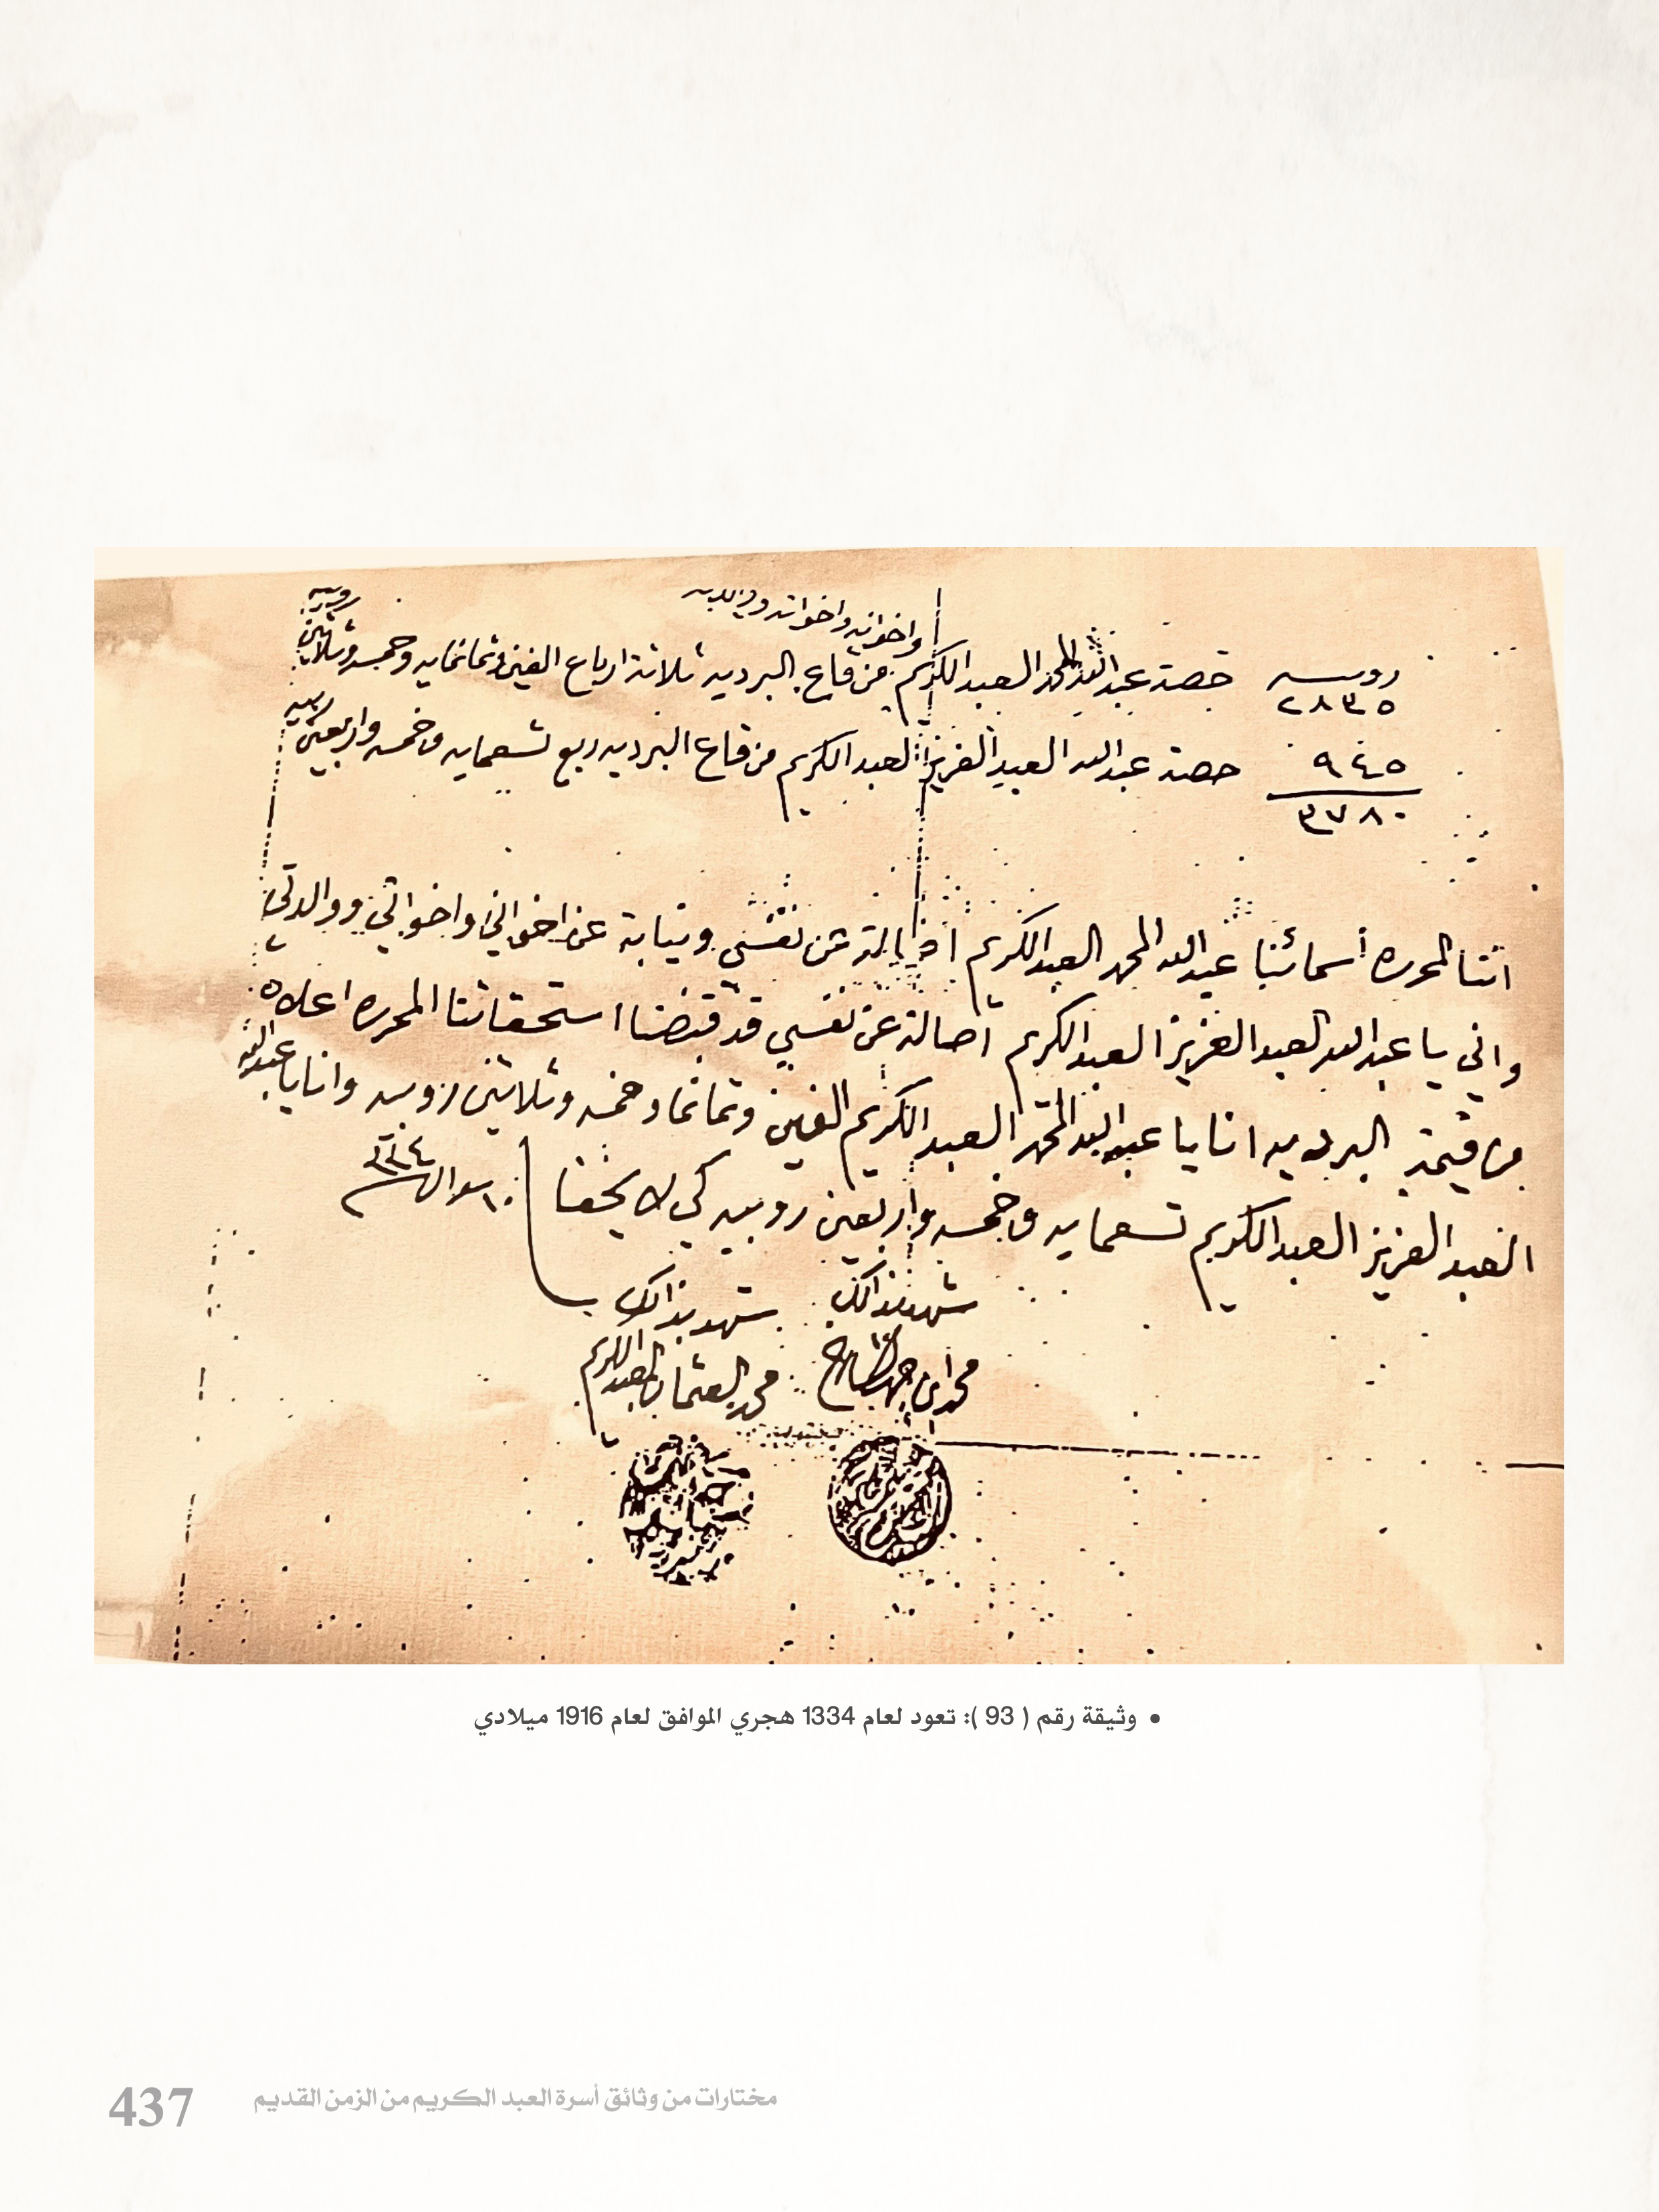 واخوانه واخواته ووالدته
روبيه
روبيه حصة عبدالله المحمد العبدالكريم من قاع البرديه ثلاثة ارباع الفين وثمانمايه وخمسه وثلاثين
٢٨٣٥
٩٤٥ حصة عبدالله العبدالعزيز العبدالكريم من قاع البرديه ربع تسعمايه وخمسه واربعين روبيه
٣٧٨٠
اننا المحرره أسمائنا عبدالله المحمد العبدالكريم اصالة عن نفسي ونيابة عن اخواني واخواتي ووالدتي
واني يا عبدالله العبدالعزيز العبدالكريم أصالة عن نفسي قد قبضنا استحقاقنا المحرره اعلاه
من قيمة البرديه انا يا عبدالله المحمد العبدالكريم الفين وثمانما وخمسه وثلاثين روبيه وانا يا عبدالله
العبدالعزيز العبدالكريم تسعمايه وخمسه واربعين روبيه كي لا يخفا ١٠ شوال ١٣٣٤
شهد بذالك شهد بذالك
محمد العثمان العبدالكريم
• وثيقة رقم ( 93 ): تعود لعام 1334 هجري الموافق لعام 1916 ميلادي
437 مختارات من وثائق أسرة العبد الكريم من الزمن القديم